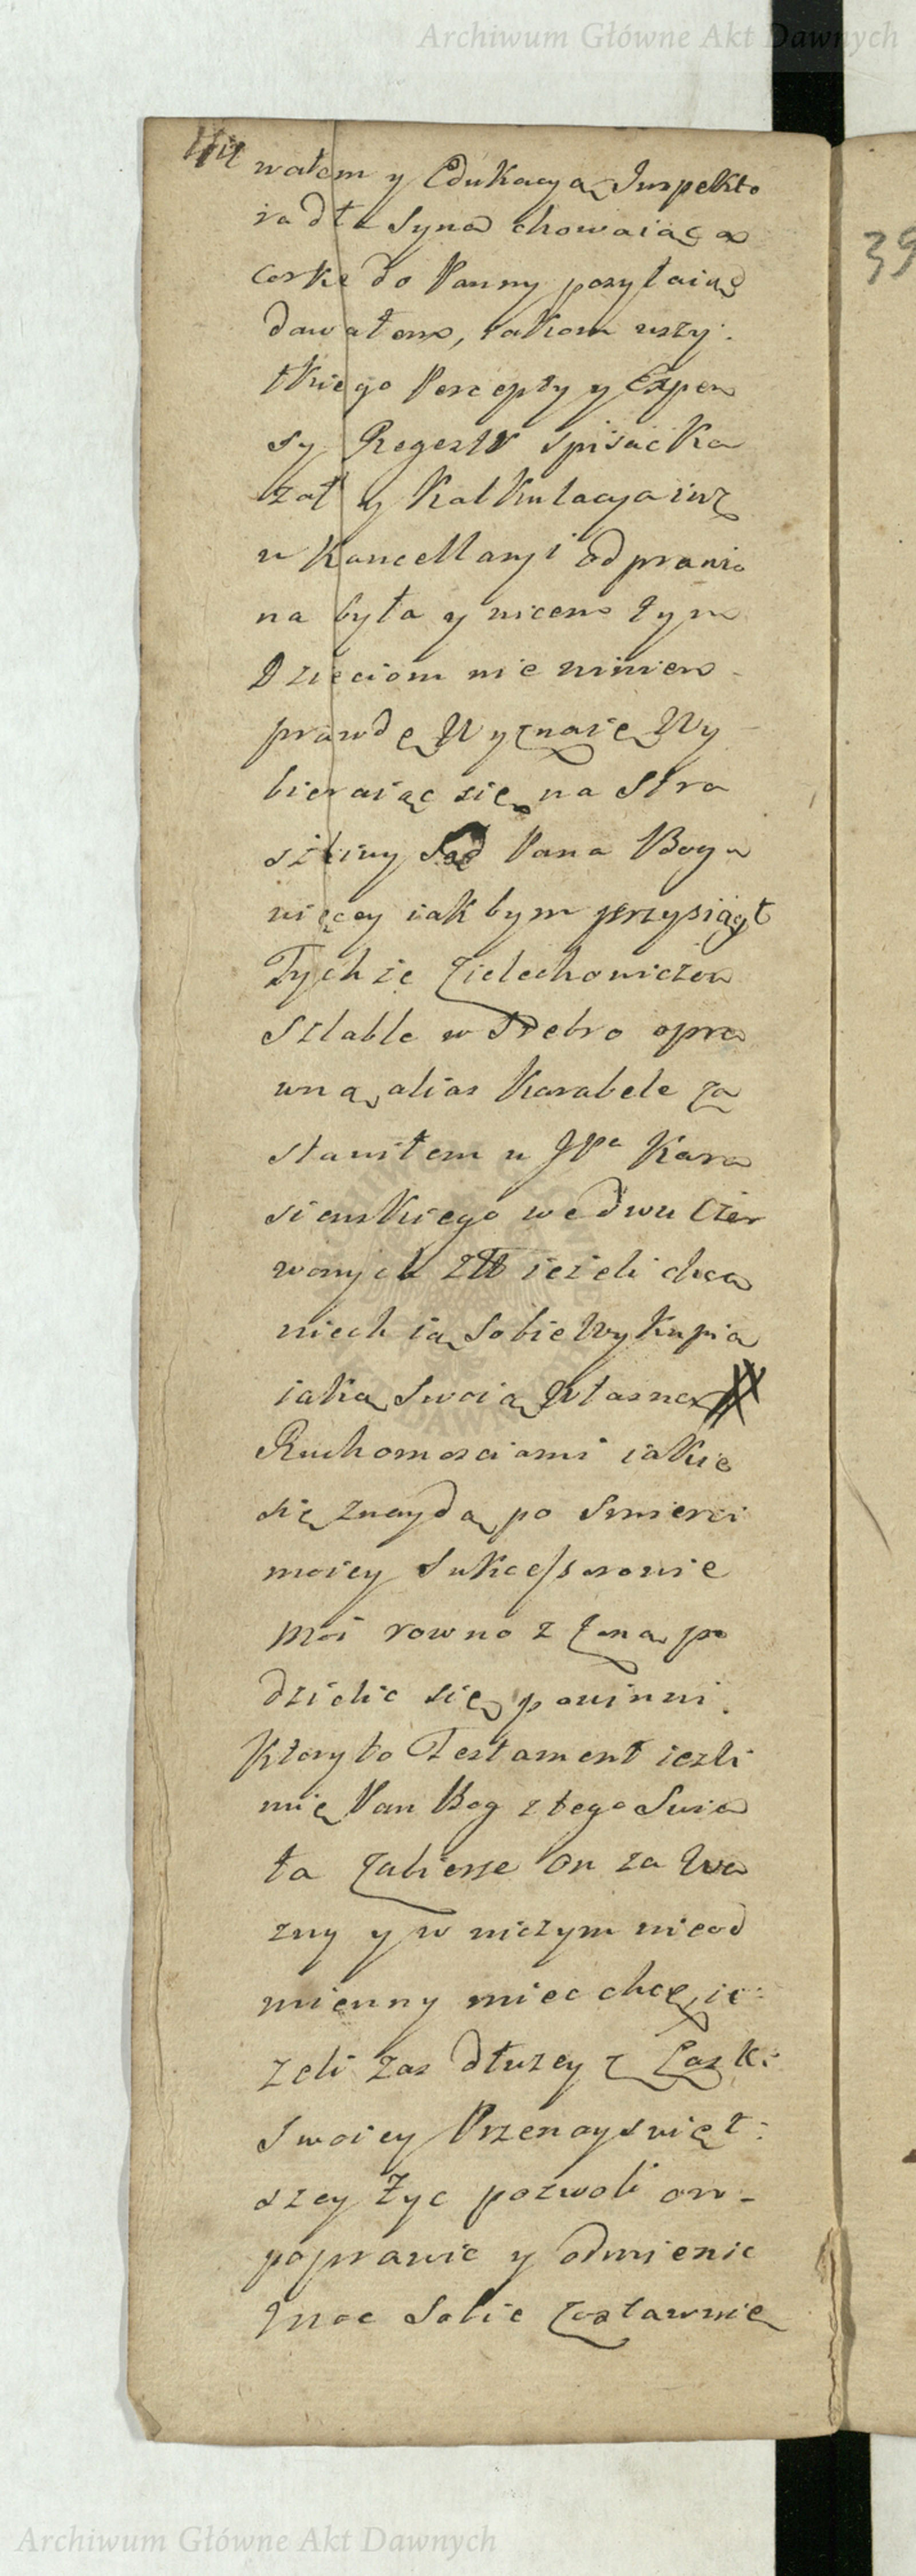 Archiwum Główne Akt Dawnych
wałem y Edukacyą Inspekto
ra dla Syna chowaiąc a
Corke do Panny posyłaiąc
dawałem, takom wszy:
tkiego Percepty y Expen
sy Regestr spisac Ka
zał y Kalkulacya iuz
w Kancellaryi odprawio
na była y nicem tym
Dzieciom nie winien
prawdę Wyznaię Wy
bieraiąc się na Stra
szliwy Sąd Pana Boga
więcey iak bym przysiągł
Tychże Zielechowiczow
Szable w Srebro opra
wną alias Karabele za
stawiłem u JPa Kara
sienskiego we dwu Czer
wonych Złł ieżeli chcą
niech ią Sobie Wykupią
iaka Swoią Własną
Ruchomosciami iakie
się znaydą po Smierci
moiey Sukcessorowie
Moi rowno z Żoną po
dzielic się powinni.
Ktory to Testament iezli
mię Pan Bog z tego Swia
ta Zabierze on za Wa
zny y w niczym nieod
mienny miec chcę, ie:
zeli zas dłuzey z Łaski
Swoiey Przenayswięt:
szey Zyc pozwoli on
poprawic y odmienic
Moc Sobie Zostawuię
39
Archiwum Główne Akt Dawnych